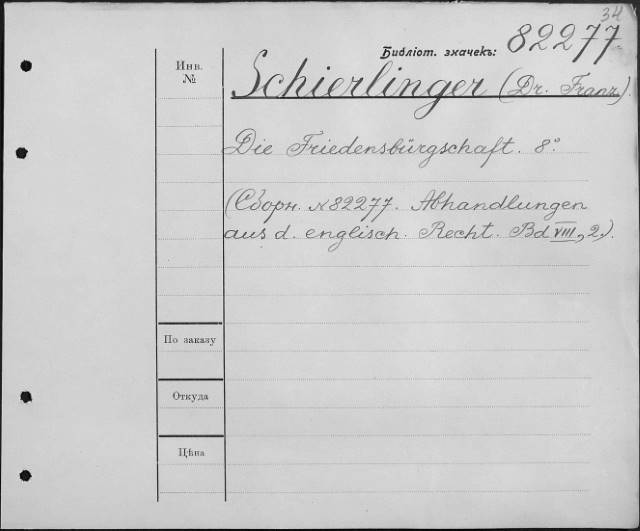 34
Библіот. значекъ: 82277
Инв.
№
Schierlinger (Dr. Franz).
Die Friedensbürgschaft. 8°.
(Сборн. №82277. Abhandlungen
aus d. englisch. Recht. Bd VIII, 2,).
По заказу
Откуда
Цѣна